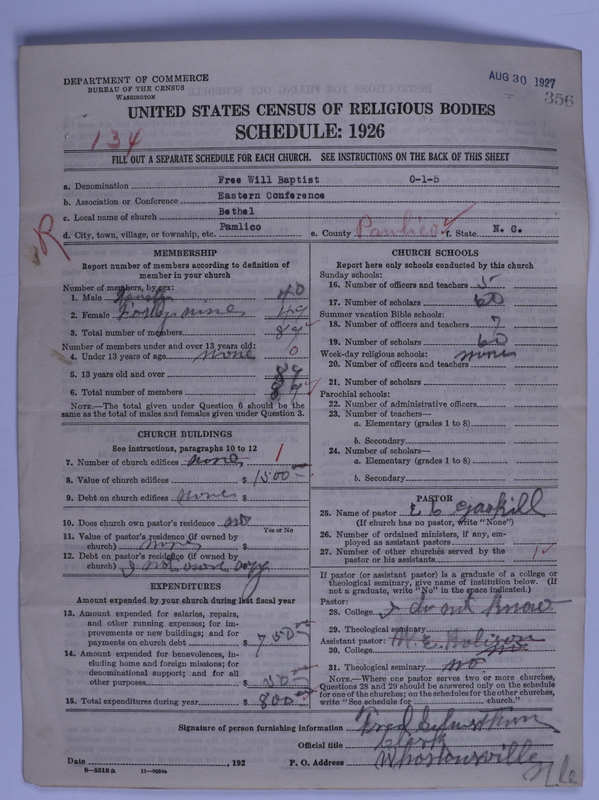 DEPARTMENT OF COMMERCE
BUREAU OF THE CENSUS
WASHINGTON
AUG 30 1927
356
UNITED STATES CENSUS OF RELIGIOUS BODIES
134
SCHEDULE: 1926
FILL OUT A SEPARATE SCHEDULE FOR EACH CHURCH. SEE INSTRUCTIONS ON THE BACK OF THIS SHEET
a. Denomination Free Will Baptist 0-1-5
b. Association or Conference Eastern Conference
c. Local name of church Bethel
R
d. City, town, village, or township, etc. Pamlico e. County Pamlico f. State N. C.
MEMBERSHIP
Report number of members according to definition of member in your church
Number of members, by sex:
1. Male 40
2. Female Forty nine 49
3. Total number of members 89
Number of members under and over 13 years old:
4. Under 13 years of age none 0
5. 13 years old and over 89
6. Total number of members 89
NOTE.—The total given under Question 6 should be the same as the total of males and females given under Question 3.
CHURCH BUILDINGS
See instructions, paragraphs 10 to 12
7. Number of church edifices none 1
8. Value of church edifices $ 1500
9. Debt on church edifices none $
10. Does church own pastor's residence no
Yes or No
11. Value of pastor's residence (if owned by church) none $
12. Debt on pastor's residence (if owned by church) I not own
EXPENDITURES
Amount expended by your church during last fiscal year
13. Amount expended for salaries, repairs, and other running expenses; for improvements or new buildings; and for payments on church debt $ 750
14. Amount expended for benevolences, including home and foreign missions; for denominational support; and for all other purposes $ 50
15. Total expenditures during year $ 800
CHURCH SCHOOLS
Report here only schools conducted by this church
Sunday schools:
16. Number of officers and teachers 5
17. Number of scholars 60
Summer vacation Bible schools:
18. Number of officers and teachers 7
19. Number of scholars 60
Week-day religious schools: none
20. Number of officers and teachers
21. Number of scholars
Parochial schools:
22. Number of administrative officers
23. Number of teachers—
a. Elementary (grades 1 to 8)
b. Secondary
24. Number of scholars—
a. Elementary (grades 1 to 8)
b. Secondary
PASTOR
25. Name of pastor Gaskill
(If church has no pastor, write "None")
26. Number of ordained ministers, if any, employed as assistant pastors
27. Number of other churches served by the pastor or his assistants 1
If pastor (or assistant pastor) is a graduate of a college or theological seminary, give name of institution below. (If not a graduate, write "No" in the space indicated.)
Pastor:
28. College I do not know
29. Theological seminary
Assistant pastor: M. E.
30. College no
31. Theological seminary no
NOTE.—Where one pastor serves two or more churches, Questions 28 and 29 should be answered only on the schedule for one of the churches; on the schedules for the other churches, write "See schedule for church."
Signature of person furnishing information Fred
Official title Clerk
Date , 192 P. O. Address Whortonsville
N. C.
8—5518 a 11—9554a